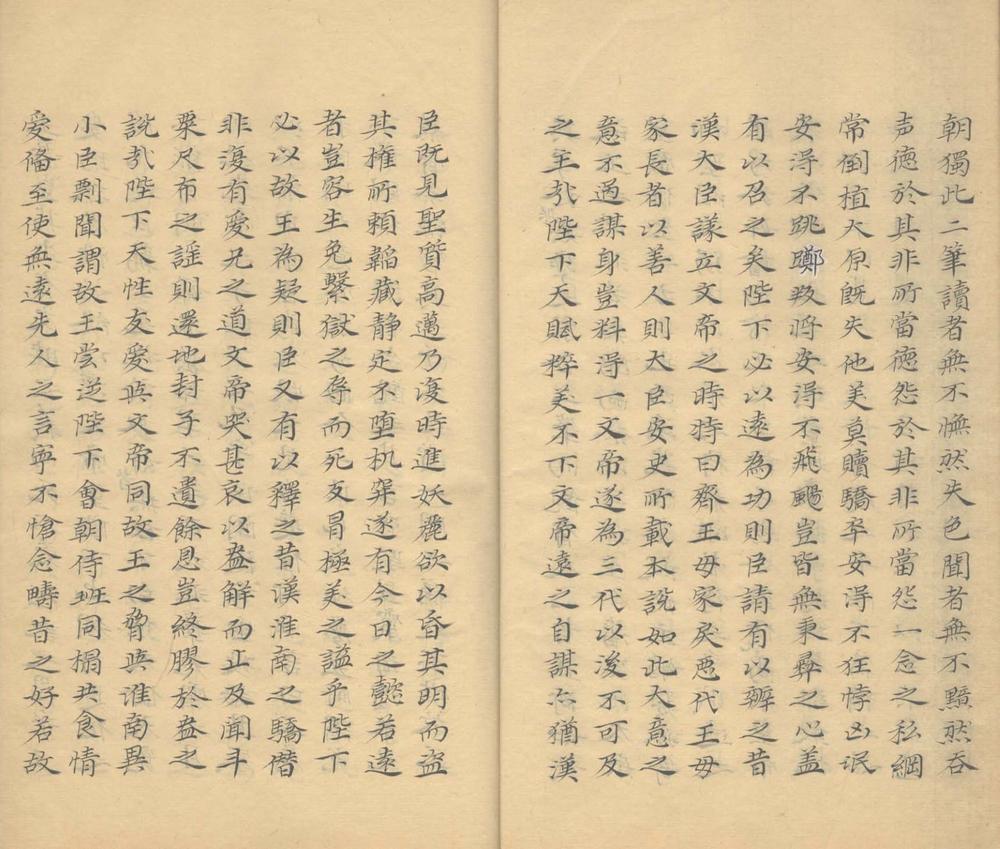 朝獨此二筆讀者無不憮然失色聞者無不黯然吞
声德於其非所當德怨於其非所當怨一念之私綱
常倒植大原既失他美莫贖驕卒安淂不狂悖凶泯
安淂不跳躑叛将安淂不飛颺豈皆無秉彛之心盖
有以召之矣陛下必以遠為功則臣請有以辨之昔
漢大臣議立文帝之時特曰齊王母家戾惡代王母
家長者以善人則大臣安史所載本說如此大意之
意不過謀身豈料淂一文帝遂為三代以後不可及
之主㢤陛下天賦粹美不下文帝遠之自謀亦猶漢
臣既見聖質高邁乃復時進妖麗欲以昏其明而盗
其權所賴韜藏静定不墮机穽遂有今日之懿若遠
者豈容生免繫獄之辱而死叐冒極美之謚乎陛下
必以故王為疑則臣又有以釋之昔漢淮南之驕僭
非復有愛兄之道文帝哭甚哀以盎解而止及聞斗
粟尺布之謡則還地封子不遺餘恩豈終膠於盎之
說㢤陛下天性友愛與文帝同故王之脅與淮南異
小臣剽聞謂故王嘗逆陛下會朝侍班同榻共食情
愛俻至使無遠先人之言寧不愴念疇昔之好若故